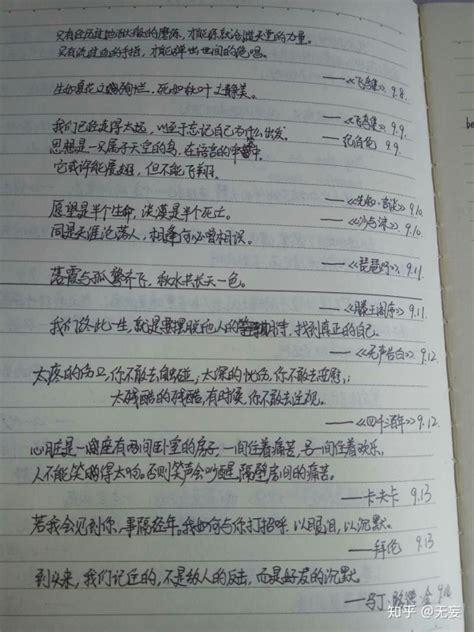 只有经历过地狱般的磨练，才能练就创造天堂的力量。
只有流过血的手指，才能弹出世间的绝唱。
——《飞鸟集》9.8
生如夏花之绚烂，死如秋叶之静美。
——《飞鸟集》9.9
我们已经走得太远，以至于忘记自己为什么出发。
——纪伯伦 9.9
思想是一只属于天空的鸟，在语言的牢笼中
它或许能展翅，但不能飞翔。
——《先知·言谈》9.10
愿望是半个生命，淡漠是半个死亡。
——《沙与沫》9.10
同是天涯沦落人，相逢何必曾相识。
——《琵琶行》9.11
落霞与孤鹜齐飞，秋水共长天一色。
——《滕王阁序》9.11
我们终此一生，就是要摆脱他人的期待，找到真正的自己。
——《无声告白》9.12
太疼的伤口，你不敢去触碰；太深的忧伤，你不敢去安慰；
太残酷的残酷，有时候，你不敢去注视。
——《四个酒年》9.12
心脏是一座有两间卧室的房子，一间住着痛苦，另一间住着欢乐，
人不能笑得太响。否则笑声会吵醒隔壁房间的痛苦。
——卡夫卡 9.13
若我会见到你，事隔经年。我如何与你打招呼，以眼泪，以沉默。
——拜伦 9.13
到头来，我们记住的，不是敌人的反击，而是好友的沉默。
——马丁·路德·金 9.14
知乎 @无妄